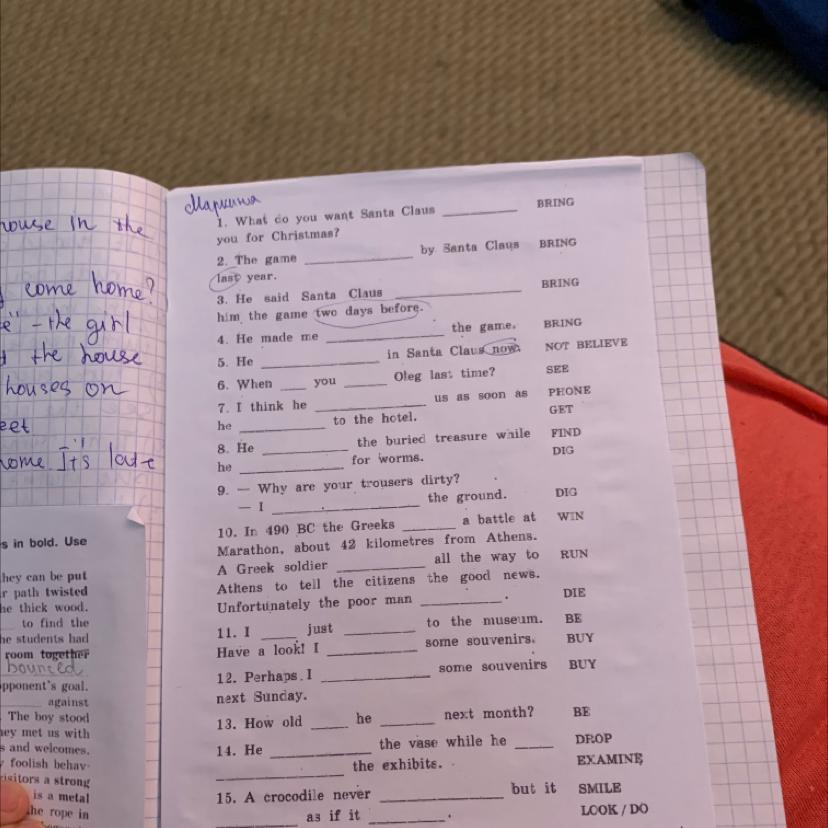 house in the
come home?
" - the girl
the house
houses on
eet
home. It's late
s in bold. Use
hey can be put
r path twisted
he thick wood.
to find the
he students had
room together
bounced
pponent's goal.
against
The boy stood
hey met us with
s and welcomes.
foolish behav-
isitors a strong
is a metal
he rope in
1. What do you want Santa Claus ________ BRING
you for Christmas?
2. The game ________ by Santa Claus BRING
last year.
3. He said Santa Claus ________ BRING
him the game two days before.
4. He made me ________ the game. BRING
5. He ________ in Santa Claus now. NOT BELIEVE
6. When ____ you ____ Oleg last time? SEE
7. I think he ________ us as soon as PHONE
he ________ to the hotel. GET
8. He ________ the buried treasure while FIND
he ________ for worms. DIG
9. — Why are your trousers dirty?
— I ________ the ground. DIG
10. In 490 BC the Greeks ____ a battle at WIN
Marathon, about 42 kilometres from Athens.
A Greek soldier ________ all the way to RUN
Athens to tell the citizens the good news.
Unfortunately the poor man ________. DIE
11. I ____ just ________ to the museum. BE
Have a look! I ________ some souvenirs. BUY
12. Perhaps I ________ some souvenirs BUY
next Sunday.
13. How old ____ he ____ next month? BE
14. He ________ the vase while he ____ DROP
________ the exhibits. EXAMINE
15. A crocodile never ________ but it SMILE
________ as if it ________. LOOK / DO